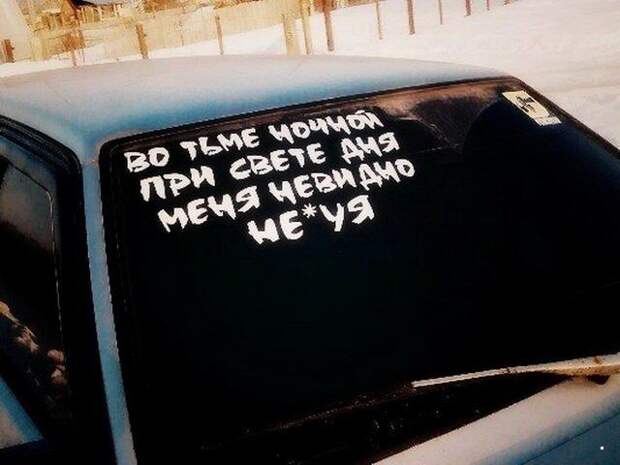 ВО ТЬМЕ НОЧНОЙ
ПРИ СВЕТЕ ДНЯ
МЕНЯ НЕВИДНО
НЕ*УЯ